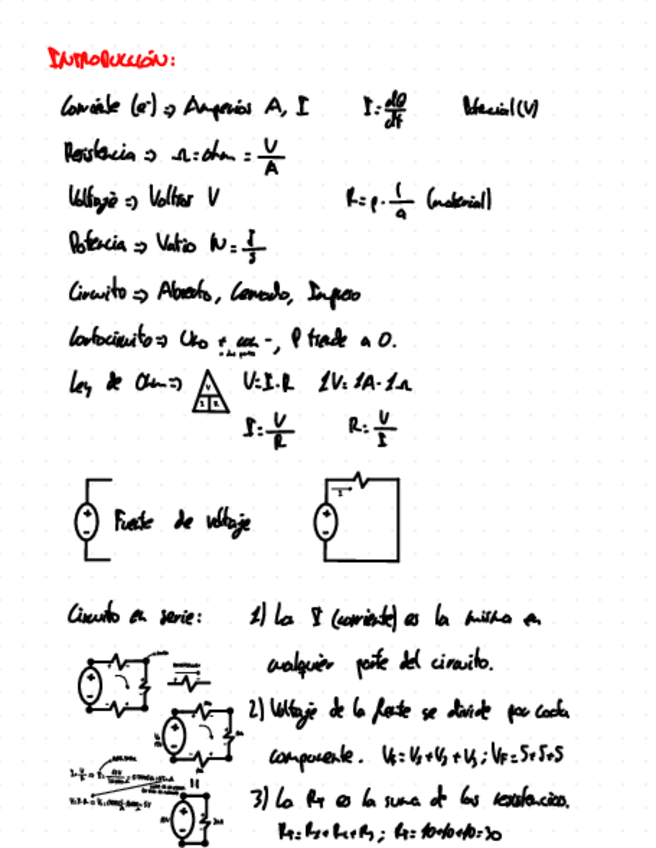 INTRODUCCIÓN:
Corriente (e-) => Amperios A, I I = dQ/dt Potencial (V)
Resistencia => Ω = ohm = V/A
Voltaje => Voltios V R = ρ · l/a (material)
Potencia => Vatio W = J/s
Circuito => Abierto, Cerrado, Impreso
Cortocircuito => Uno + con -, R tiende a 0.
Ley de Ohm => V I R V = I · R 1V = 1A · 1Ω
I = V/R R = V/I
+ - Fuente de voltaje + - I
Circuito en serie: 1) La I (corriente) es la misma en
cualquier parte del circuito.
2) Voltaje de la fuente se divide por cada
componente. Vf = V1 + V2 + V3; VF = 5+5+5
3) La RT es la suma de las resistencias.
RT = R1 + R2 + R3; RT = 10+10+10 = 30